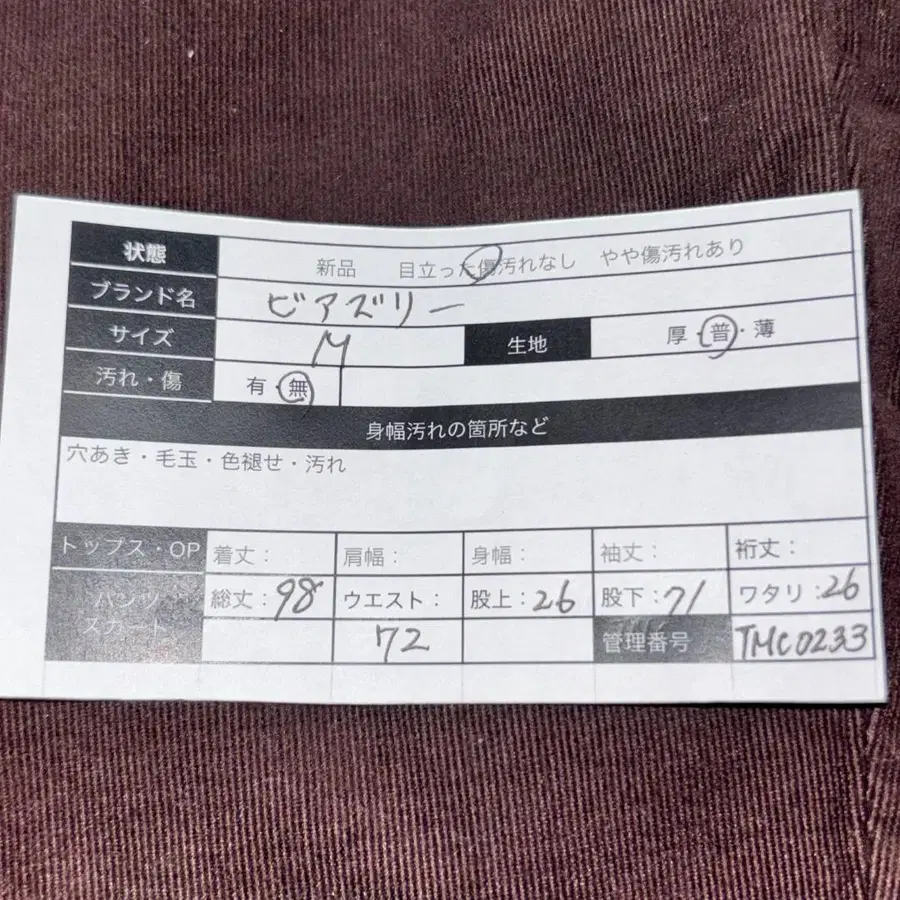 状態 新品 目立った傷汚れなし やや傷汚れあり
ブランド名 ビアズリー
サイズ M 生地 厚・普・薄
汚れ・傷 有・無
身幅汚れの箇所など
穴あき・毛玉・色褪せ・汚れ
トップス・OP 着丈： 肩幅： 身幅： 袖丈： 裄丈：
パンツ 総丈：98 ウエスト： 股上：26 股下：71 ワタリ：26
スカート 72 管理番号 TMC0233